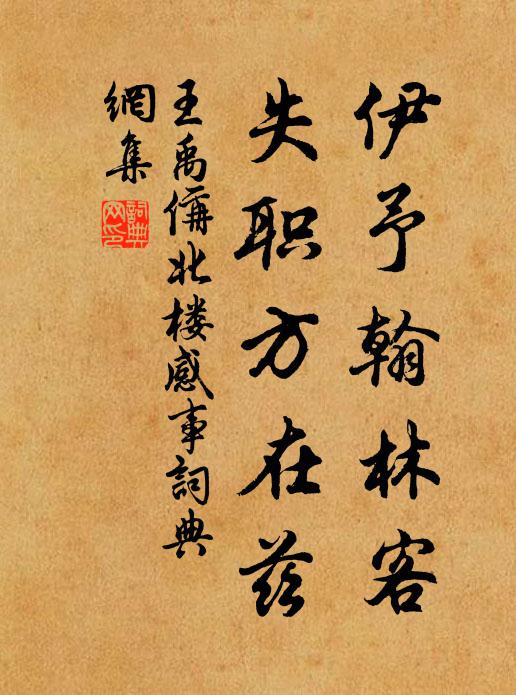 伊予翰林客
失职方在兹
王禹偁北楼感事詞典
網集
詞典
网印